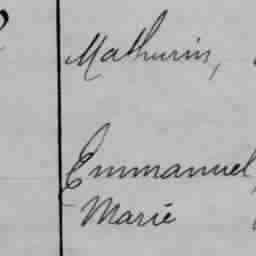 Mathurin,
Emmanuel,
Marie